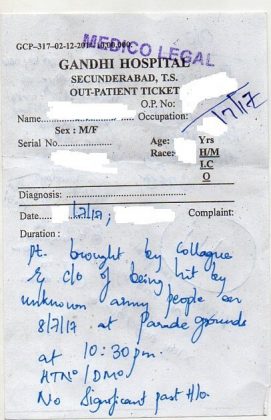 GCP-317-02-12-2016-10,00,000
MEDICO LEGAL
GANDHI HOSPITAL
SECUNDERABAD, T.S.
OUT-PATIENT TICKET
O.P. No:
Name Occupation:
/7/17
Sex : M/F Age: Yrs
Serial No. Race: H/M
I.C
O
Diagnosis:
Date /7/17; Complaint:
Duration :
Pt. brought by Collague
c c/o of being hit by
unknown army people on
8/7/17 at Parade grounds
at 10:30pm.
ATNo/DMO
No Significant past H/o